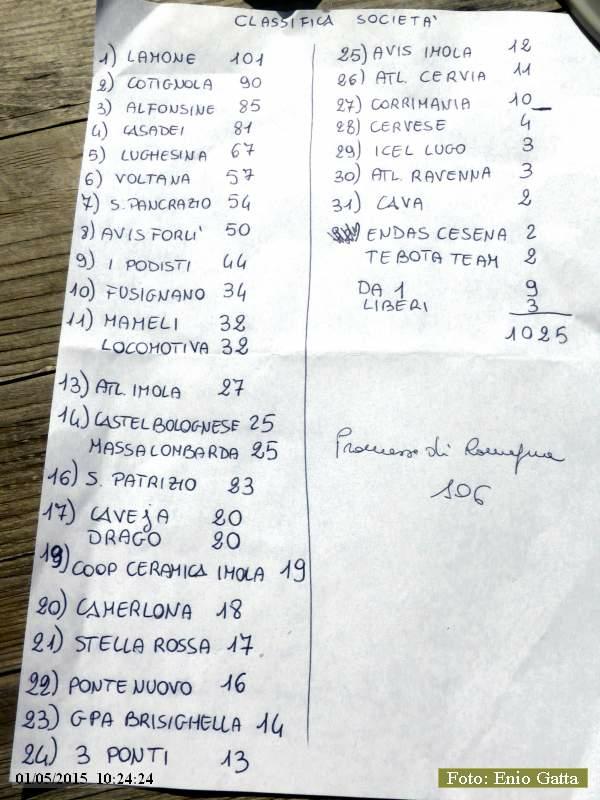 CLASSIFICA SOCIETA'
1) LAMONE 101
2) COTIGNOLA 90
3) ALFONSINE 85
4) CASADEI 81
5) LUGHESINA 67
6) VOLTANA 57
7) S. PANCRAZIO 54
8) AVIS FORLI' 50
9) I PODISTI 44
10) FUSIGNANO 34
11) MAMELI 32
LOCOMOTIVA 32
13) ATL. IMOLA 27
14) CASTEL BOLOGNESE 25
MASSA LOMBARDA 25
16) S. PATRIZIO 23
17) CAVEJA 20
DRAGO 20
19) COOP CERAMICA IMOLA 19
20) CAMERLONA 18
21) STELLA ROSSA 17
22) PONTE NUOVO 16
23) GPA BRISIGHELLA 14
24) 3 PONTI 13
25) AVIS IMOLA 12
26) ATL. CERVIA 11
27) CORRIMANIA 10
28) CERVESE 4
29) ICEL LUGO 3
30) ATL. RAVENNA 3
31) CAVA 2
ENDAS CESENA 2
TEBOTA TEAM 2
DA 1 9
LIBERI 3
1025
Promesse di Romagna
106
01/05/2015 10:24:24
Foto: Enio Gatta